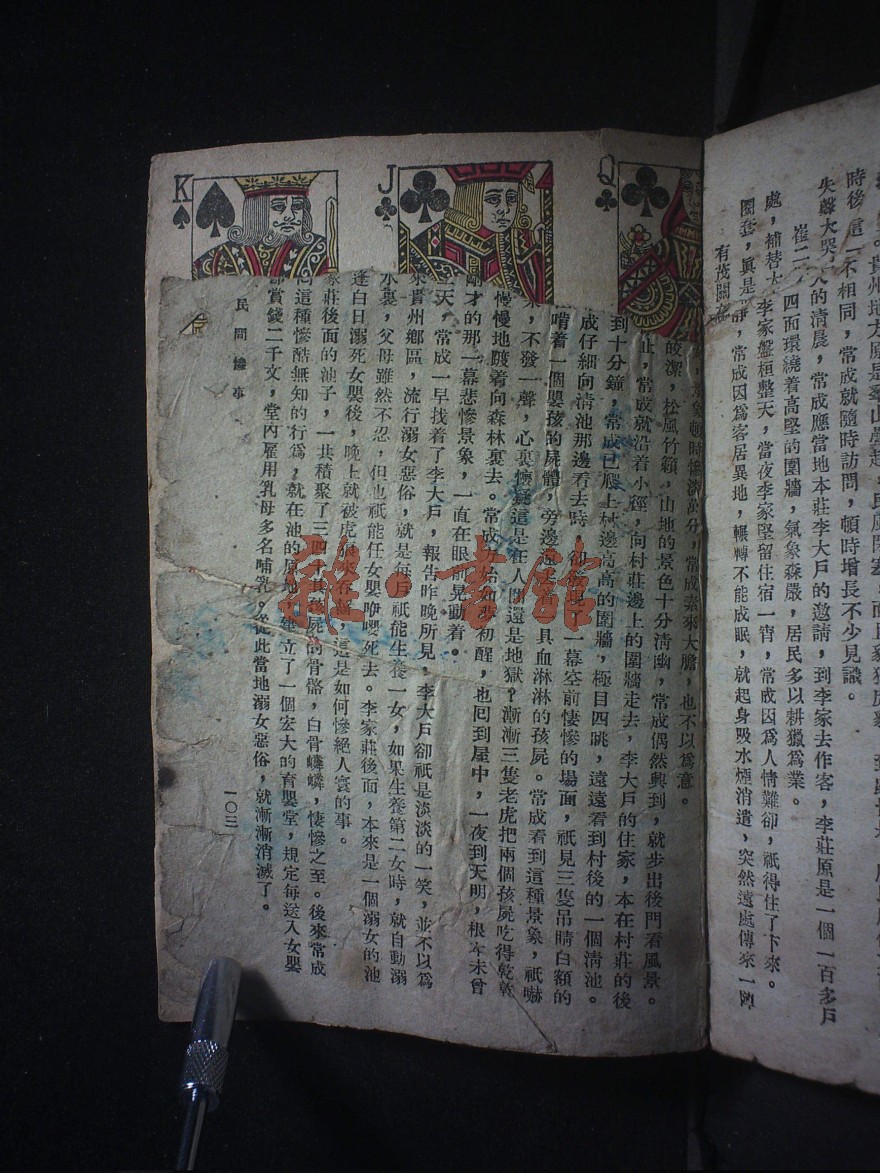 時後
這一不相同，常成就隨時訪問，頓時增長不少見識。
失聲大哭
人的清晨，常成應當地本莊李大戶的邀請，到李家去作客，李莊原是一個一百多戶
崔二
四面環繞着高堅的圍牆，氣象森嚴，居民多以耕獵爲業。
處，補替
李家盤桓整天，當夜李家堅留住宿一宵，常成因爲人情難卻，祇得住了下來。
圈套，眞是
靜，常成因爲客居異地，輾轉不能成眠，就起身吸水煙消遣，突然遠處傳來一陣
有茂關
景象頓時慘淡萬分，常成素來大膽，也不以爲意。
皎潔，松風竹籟，山地的景色十分淸幽，常成偶然興到，就步出後門看風景。
止，常成就沿着小徑，向村莊邊上的圍牆走去，李大戶的住家，本在村莊的後
到十分鐘，常成已爬上村邊高高的圍牆，極目四眺，遠遠看到村後的一個淸池。
成仔細向淸池那邊看去時，卻發現了一幕空前悽慘的場面，祇見三隻吊睛白額的
啃着一個嬰孩的屍體，旁邊還
具血淋淋的孩屍。常成看到這種景象，祇嚇
，不發一聲，心裏懷疑這是在人間還是地獄？漸漸三隻老虎把兩個孩屍吃得乾乾
慢慢地踱着向森林裏去。常成方始如夢初醒，也回到屋中，一夜到天明，根本未曾
剛才的那一幕悲慘景象，一直在眼前晃動着。
天，常成一早找着了李大戶，報告昨晚所見，李大戶卻祇是淡淡的一笑，並不以爲
來貴州鄉區，流行溺女惡俗，就是每戶祇能生養一女，如果生養第二女時，就自動溺
水裏，父母雖然不忍，但也祇能任女嬰咿嚶死去。李家莊後面，本來是一個溺女的池
逢白日溺死女嬰後，晚上就被虎狼來吞齧，這是如何慘絕人寰的事。
家莊後面的池子，一共積聚了三四千具孩屍的骨骼，白骨嶙嶙，悽慘之至。後來常成
這種慘酷無知的行爲，就在池的原地，建立了一個宏大的育嬰堂，規定每送入女嬰
賞錢二千文，堂內雇用乳母多名哺乳。從此當地溺女惡俗，就漸漸消滅了。
民間慘事
一〇三
K
J
Q
雜·書館